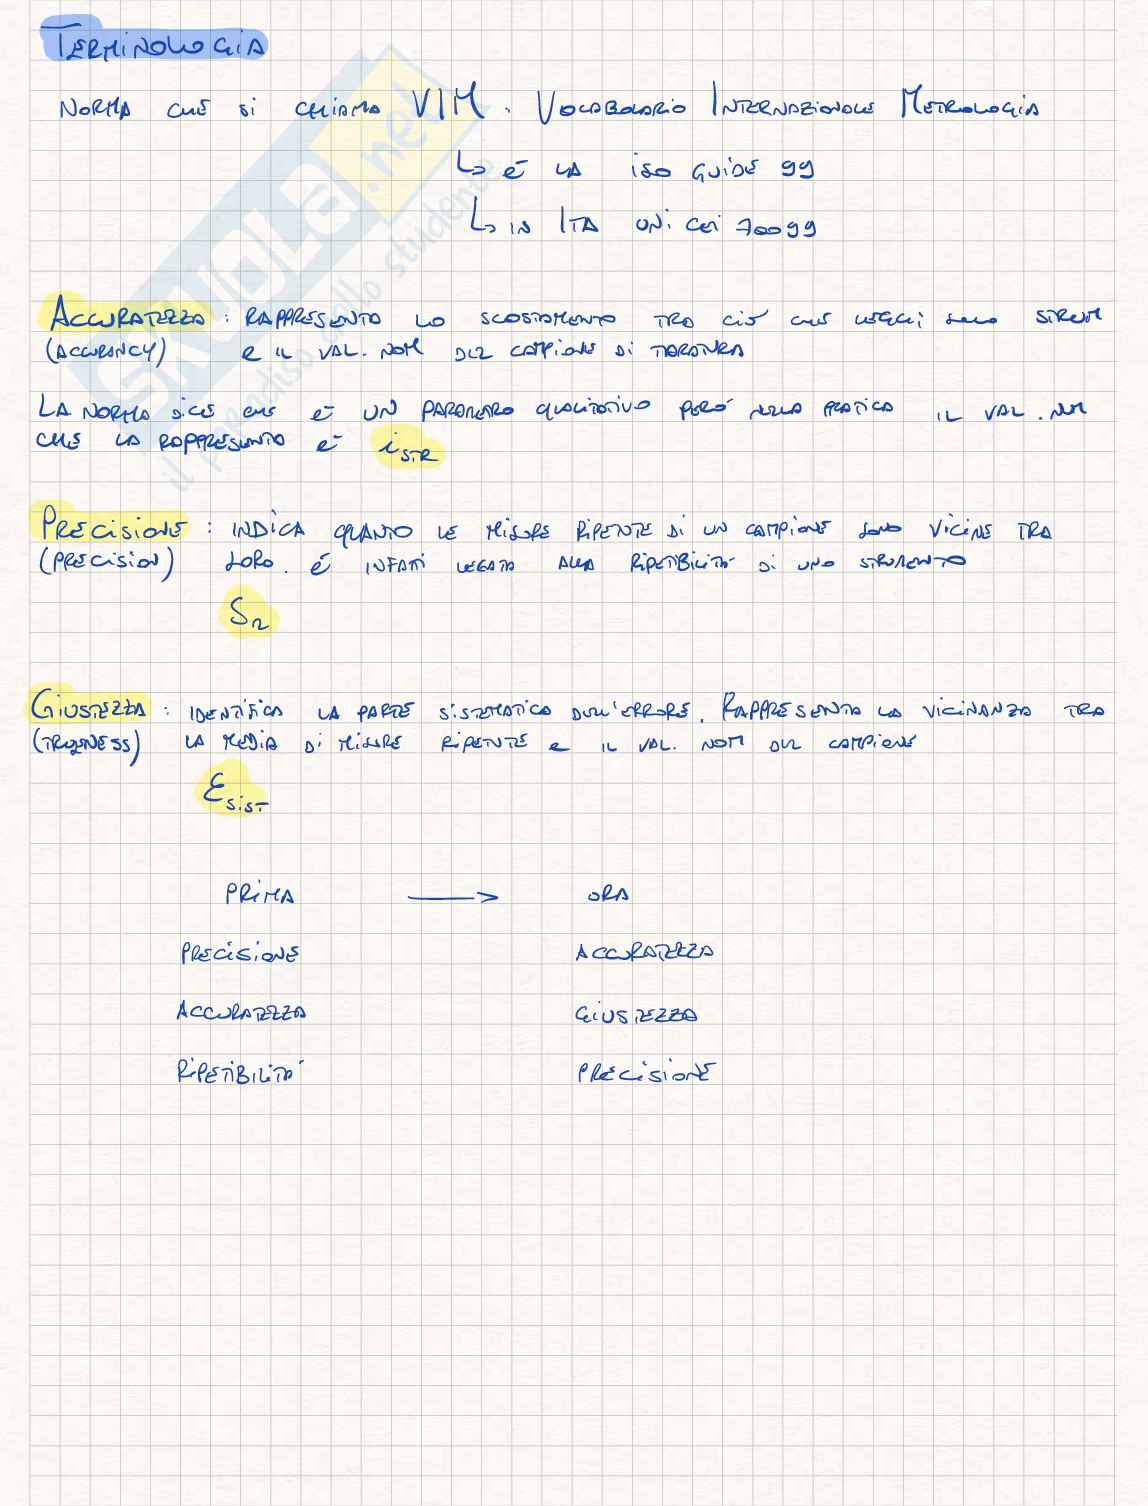 TERMINOLOGIA
NORMA CHE SI CHIAMA VIM. VOCABOLARIO INTERNAZIONALE METROLOGIA
↳ È LA ISO GUIDE 99
↳ IN ITA UNI CEI 70099
ACCURATEZZA : RAPPRESENTA LO SCOSTAMENTO TRA CIÒ CHE LEGGI SULLO STRUM
(ACCURANCY) E IL VAL. NOM DEL CAMPIONE DI TARATURA
LA NORMA DICE CHE È UN PARAMETRO QUALITATIVO PERÒ NELLA PRATICA IL VAL. NUM
CHE LA RAPPRESENTA È iSTR
PRECISIONE : INDICA QUANTO LE MISURE RIPETUTE DI UN CAMPIONE SONO VICINE TRA
(PRECISION) LORO. È INFATTI LEGATA ALLA RIPETIBILITÀ DI UNO STRUMENTO
Sr
GIUSTEZZA : IDENTIFICA LA PARTE SISTEMATICA DELL'ERRORE. RAPPRESENTA LA VICINANZA TRA
(TRUENESS) LA MEDIA DI MISURE RIPETUTE E IL VAL. NOM DEL CAMPIONE
ESIST
PRIMA → ORA
PRECISIONE ACCURATEZZA
ACCURATEZZA GIUSTEZZA
RIPETIBILITÀ PRECISIONE
SKUOLA.net
il paradiso dello studente